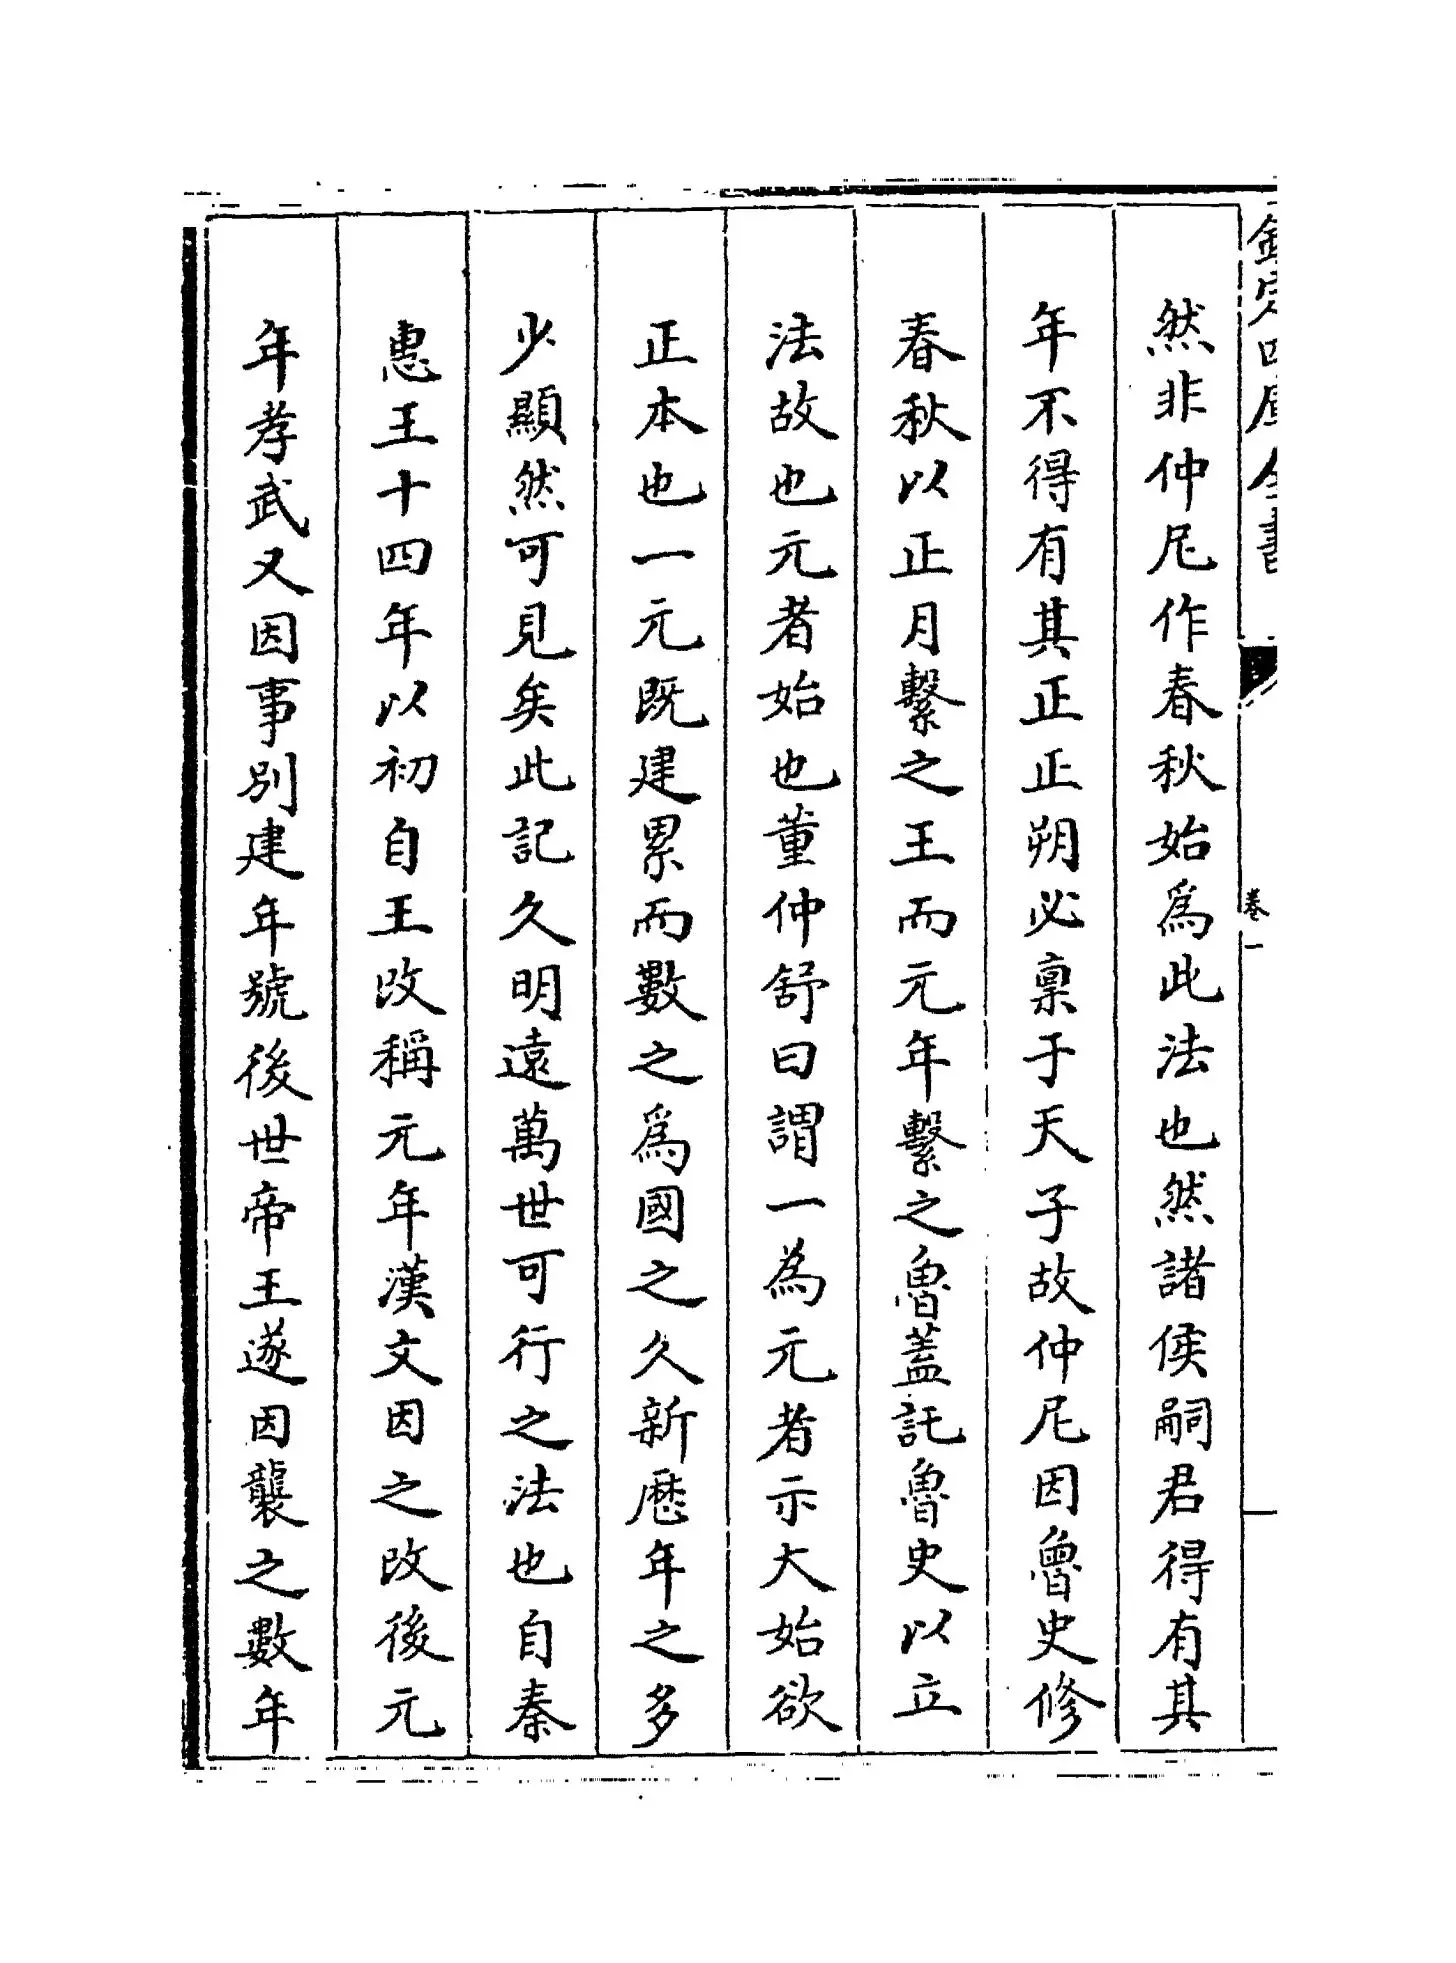 欽定四庫全書
卷一
然非仲尼作春秋始爲此法也然諸侯嗣君得有其
年不得有其正正朔必稟于天子故仲尼因魯史修
春秋以正月繫之王而元年繫之魯蓋託魯史以立
法故也元者始也董仲舒曰謂一為元者示大始欲
正本也一元既建累而數之爲國之久新歴年之多
少顯然可見矣此記久明遠萬世可行之法也自秦
惠王十四年以初自王改稱元年漢文因之改後元
年孝武又因事別建年號後世帝王遂因襲之數年